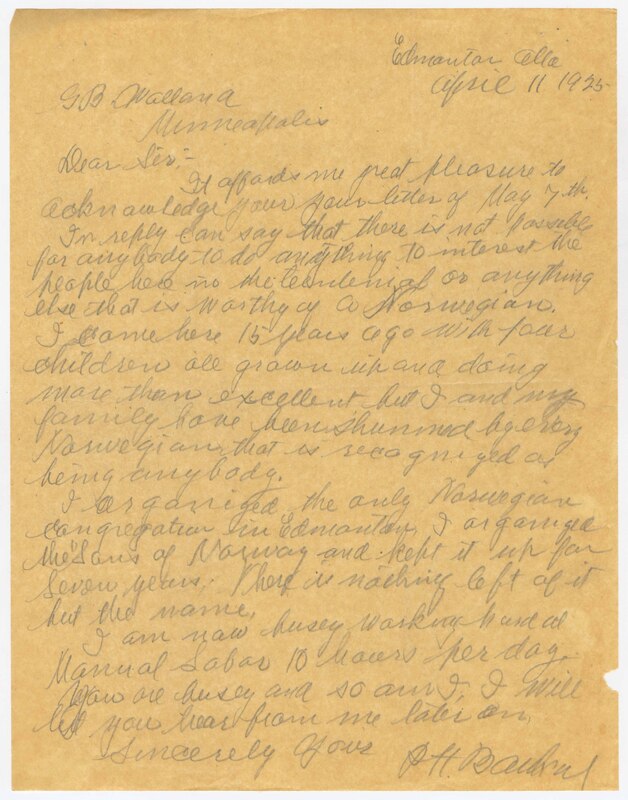 Edmonton Alta
April 11 1925
G.B. Wollana
Minneapolis
Dear Sir:-
It affords me great pleasure to
acknowledge your your letter of May 7th.
In reply can say that there is not possible
for anybody to do anything to interest the
people here in the Centenial or anything
else that is worthy of a Norwegian.
I came here 15 years ago with four
children all grown up and doing
more than excellent but I and my
family have been shunned by every
Norwegian that is recognized as
being anybody.
I organized the only Norwegian
congregation in Edmonton, I organized
the Sons of Norway and kept it up for
seven years. There is nothing left of it
but the name.
I am now busey working hard at
Manual Labor 10 hours per day.
You are busey and so am I. I will
let you hear from me later on.
Sincerely Yours